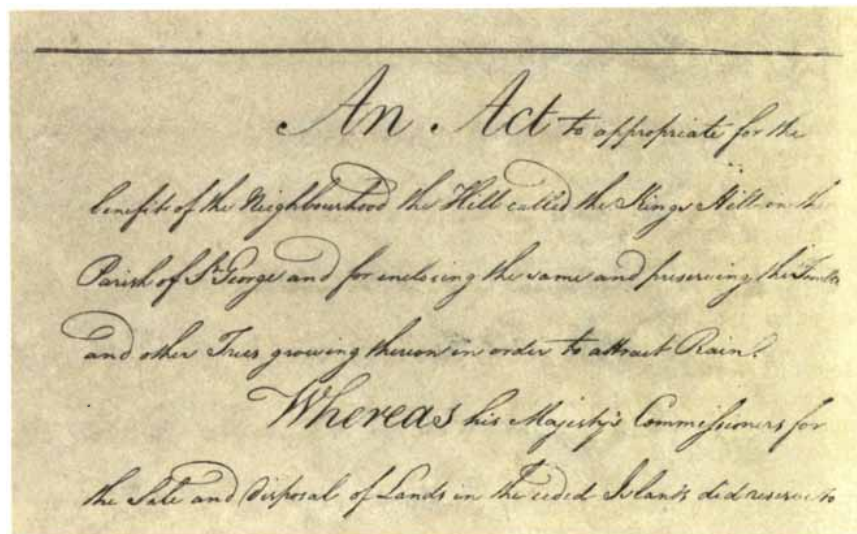 An Act to appropriate for the
benefit of the Neighbourhood the Hill called the Kings Hill on the
Parish of St George and for enclosing the same and preserving the
and other Trees growing thereon in order to attract Rain.
Whereas his Majesty's Commissioners for
the Sale and Disposal of Lands in the ceded Islands did reserve to